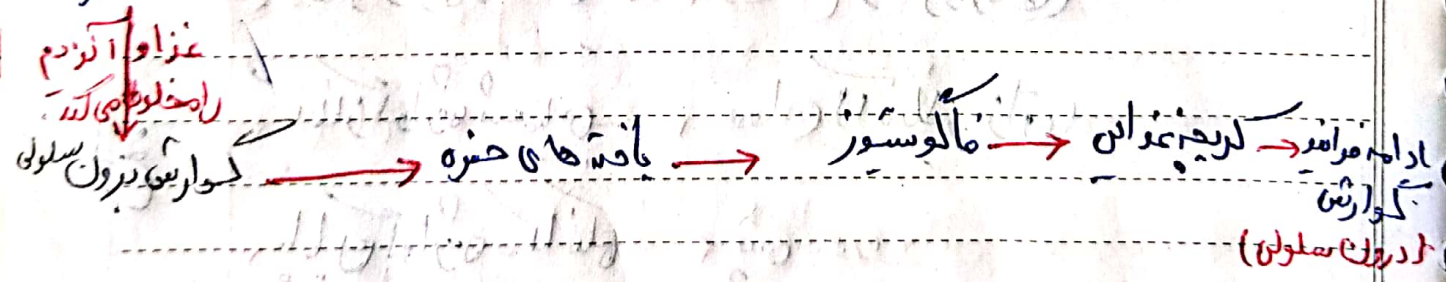 غذا و آنزیم
را مخلوط می کند
گوارش برون سلولی → یاخته های حفره → فاگوسیتوز → کریچه غذایی → ادامه فرایند
گوارش
(درون سلولی)